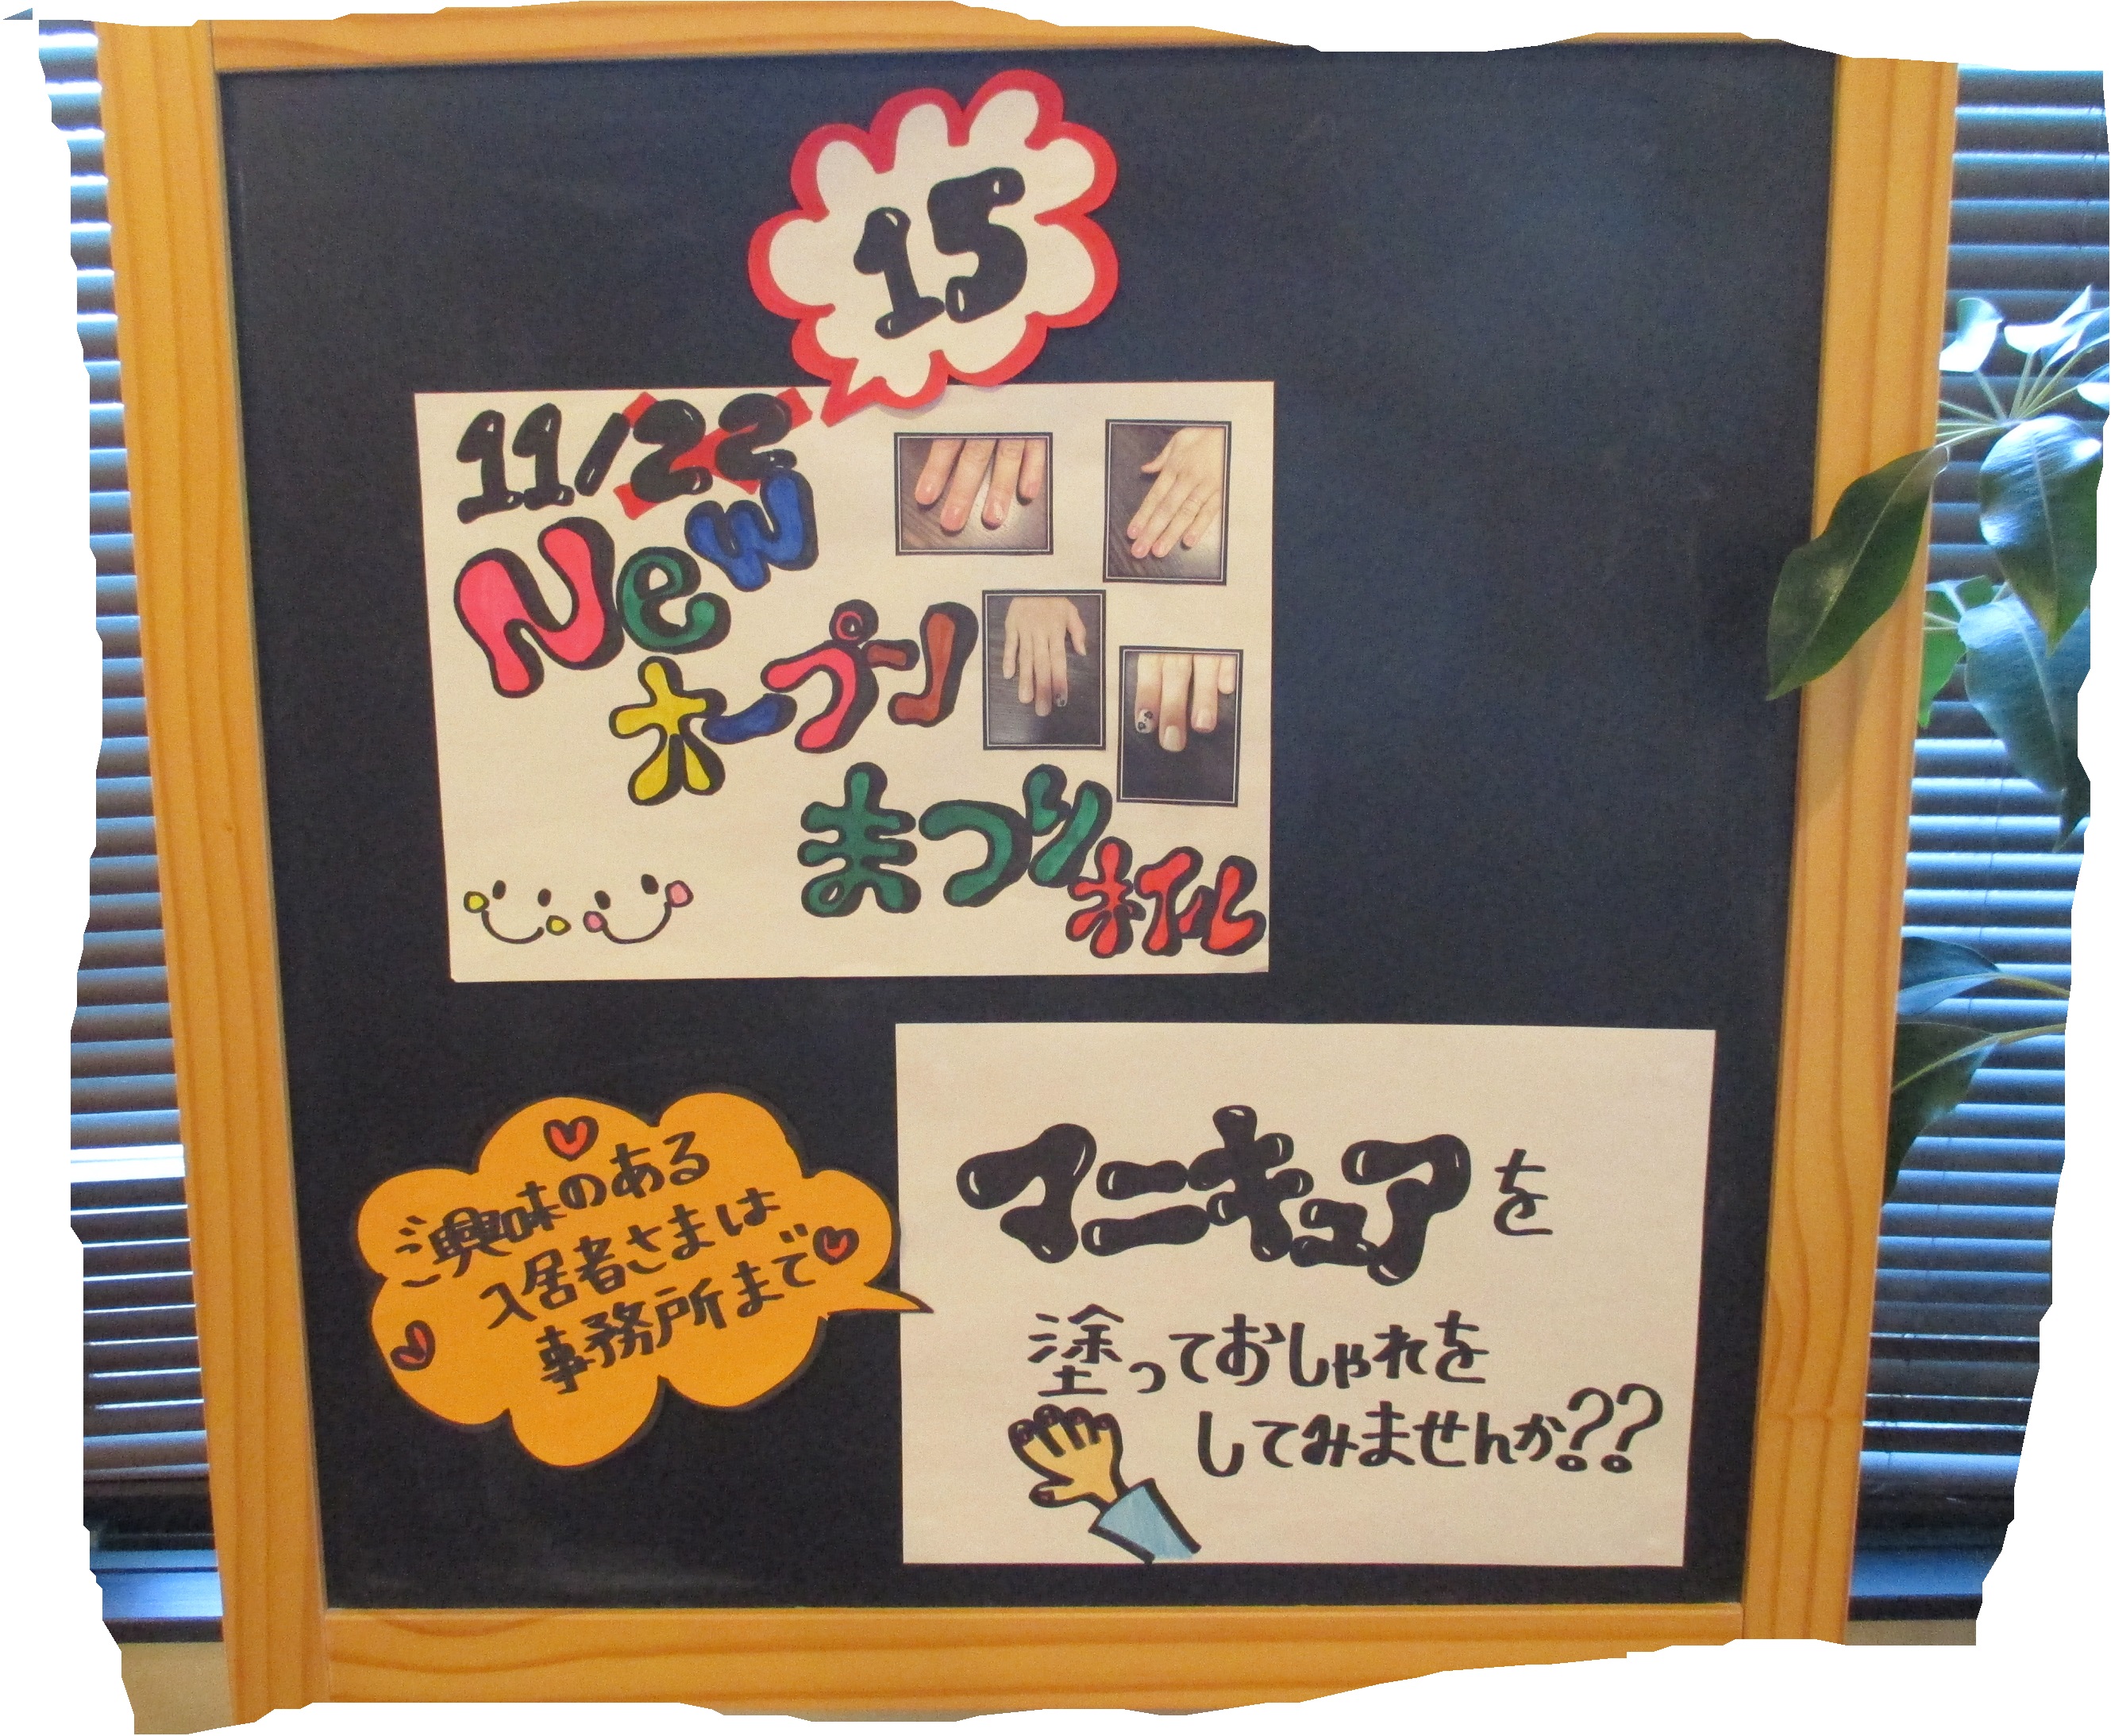 15
11/22
New
オープン
まつり
ネイル
ご興味のある
入居者さまは
事務所まで
マニキュアを
塗っておしゃれを
してみませんか??